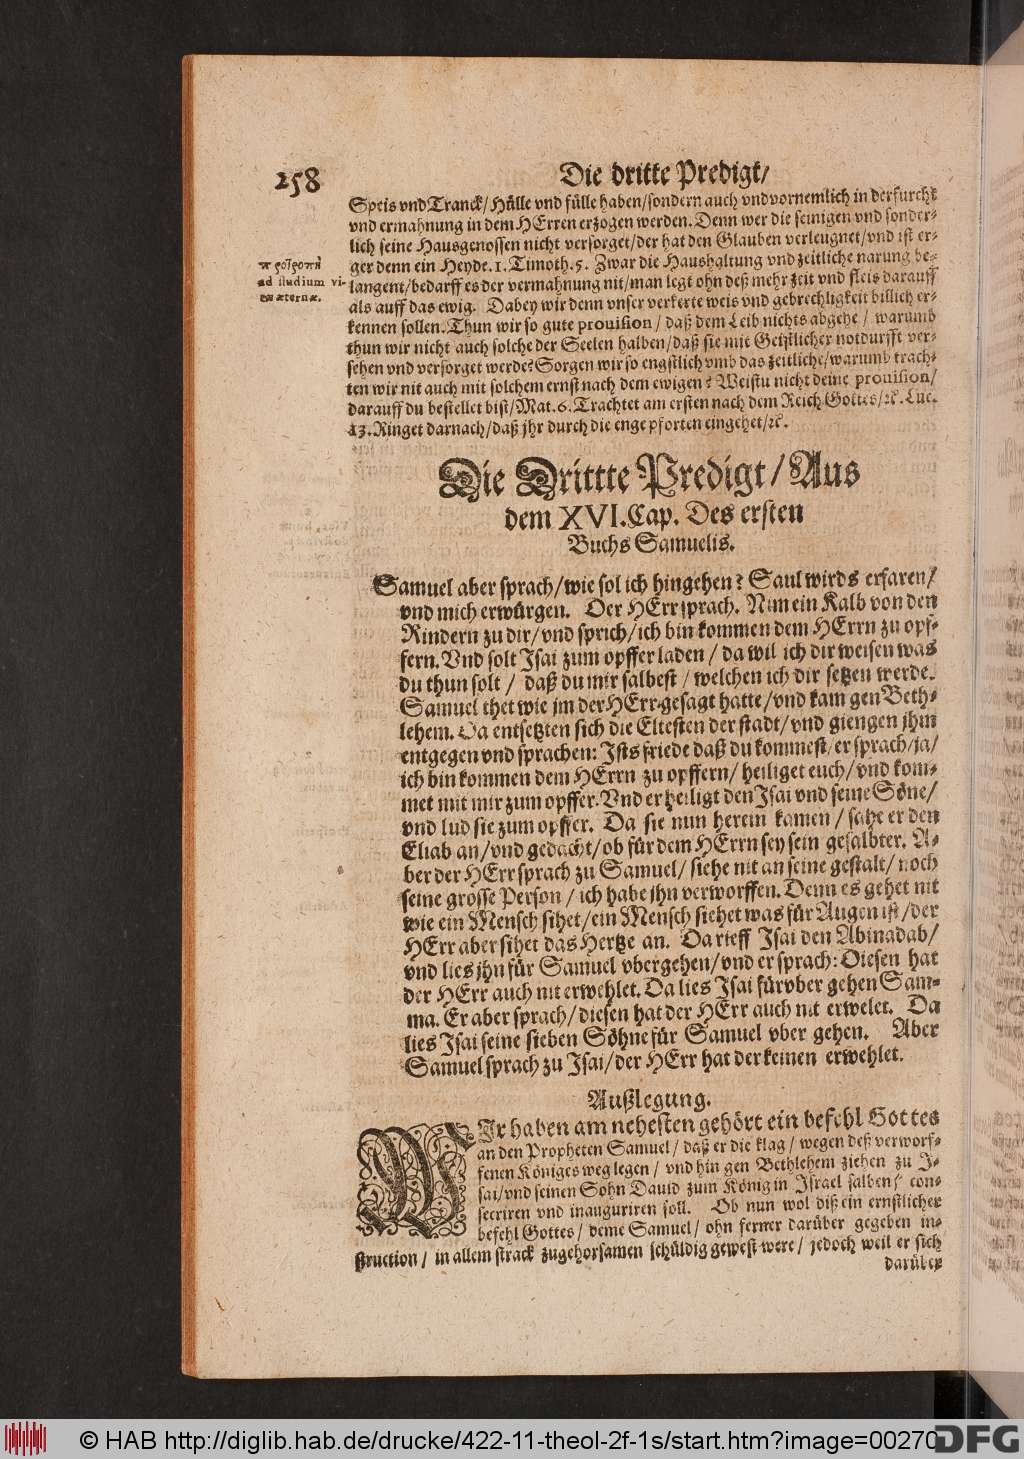 258
Die dritte Predigt/
Speis vnd Tranck/ Hülle vnd fülle haben/ sondern auch vnd vornemlich in der furcht
vnd ermahnung in dem HErren erzogen werden. Denn wer die seinigen vnd sonder-
lich seine Hausgenossen nicht versorget/ der hat den Glauben verleugnet/ vnd ist er-
ger denn ein Heyde. 1. Timoth. 5. Zwar die Haushaltung vnd zeitliche narung be-
langent/ bedarff es der vermahnung nit/ man legt ohn deß mehr zeit vnd fleis darauff
als auff das ewig. Dabey wir denn vnser verkerte weis vnd gebrechligkeit billich er-
kennen sollen. Thun wir so gute prouision/ daß dem Leib nichts abgehe/ warumb
thun wir nicht auch solche der Seelen halben/ daß sie mit Geistlicher notdurfft ver-
sehen vnd versorget werde? Sorgen wir so engstlich vmb das zeitliche/ warumb trach-
ten wir nit auch mit solchem ernst nach dem ewigen? Weistu nicht deine prouision/
darauff du bestellet bist/ Mat. 6. Trachtet am ersten nach dem Reich Gottes/ ꝛc. Luc.
13. Ringet darnach/ daß jhr durch die enge pforten eingehet/ ꝛc.
ad studium vi-
tæ æternæ.
Die Drittte Predigt/ Aus
dem XVI. Cap. Des ersten
Buchs Samuelis.
Samuel aber sprach/ wie sol ich hingehen? Saul wirds erfaren/
vnd mich erwürgen. Der HErr sprach. Nim ein Kalb von den
Rindern zu dir/ vnd sprich/ ich bin kommen dem HErrn zu opf-
fern. Vnd solt Isai zum opffer laden/ da wil ich dir weisen was
du thun solt/ daß du mir salbest/ welchen ich dir setzen werde.
Samuel thet wie jm der HErr gesagt hatte/ vnd kam gen Beth-
lehem. Da entsetzten sich die Eltesten der stadt/ vnd giengen jhm
entgegen vnd sprachen: Ists friede daß du kommest/ er sprach/ ja/
ich bin kommen dem HErrn zu opffern/ heiliget euch/ vnd kom-
met mit mir zum opffer. Vnd er heiligt den Isai vnd seine Söne/
vnd lud sie zum opffer. Da sie nun herein kamen/ sahe er den
Eliab an/ vnd gedacht/ ob für dem HErrn sey sein gesalbter. A-
ber der HErr sprach zu Samuel/ siehe nit an seine gestalt/ noch
seine grosse Person/ ich habe jhn verworffen. Denn es gehet nit
wie ein Mensch sihet/ ein Mensch siehet was für Augen ist/ der
HErr aber sihet das Hertze an. Da rieff Isai den Abinadab/
vnd lies jhn für Samuel vbergehen/ vnd er sprach: Diesen hat
der HErr auch nit erwehlet. Da lies Isai fürvber gehen Sam-
ma. Er aber sprach/ diesen hat der HErr auch nit erwelet. Da
lies Isai seine sieben Söhne für Samuel vber gehen. Aber
Samuel sprach zu Isai/ der HErr hat der keinen erwehlet.
Außlegung.
WIr haben am nehesten gehört ein befehl Gottes
an den Propheten Samuel/ daß er die klag/ wegen deß verworf-
fenen Königes weg legen/ vnd hin gen Bethlehem ziehen zu I-
sai/ vnd seinen Sohn Dauid zum König in Israel salben/ con-
secriren vnd inauguriren soll. Ob nun wol diß ein ernstlicher
befehl Gottes/ deme Samuel/ ohn ferner darüber gegeben in-
struction/ in allem strack zugehorsamen schüldig gewest were/ jedoch weil er sich
darüber
© HAB http://diglib.hab.de/drucke/422-11-theol-2f-1s/start.htm?image=00270
DFG